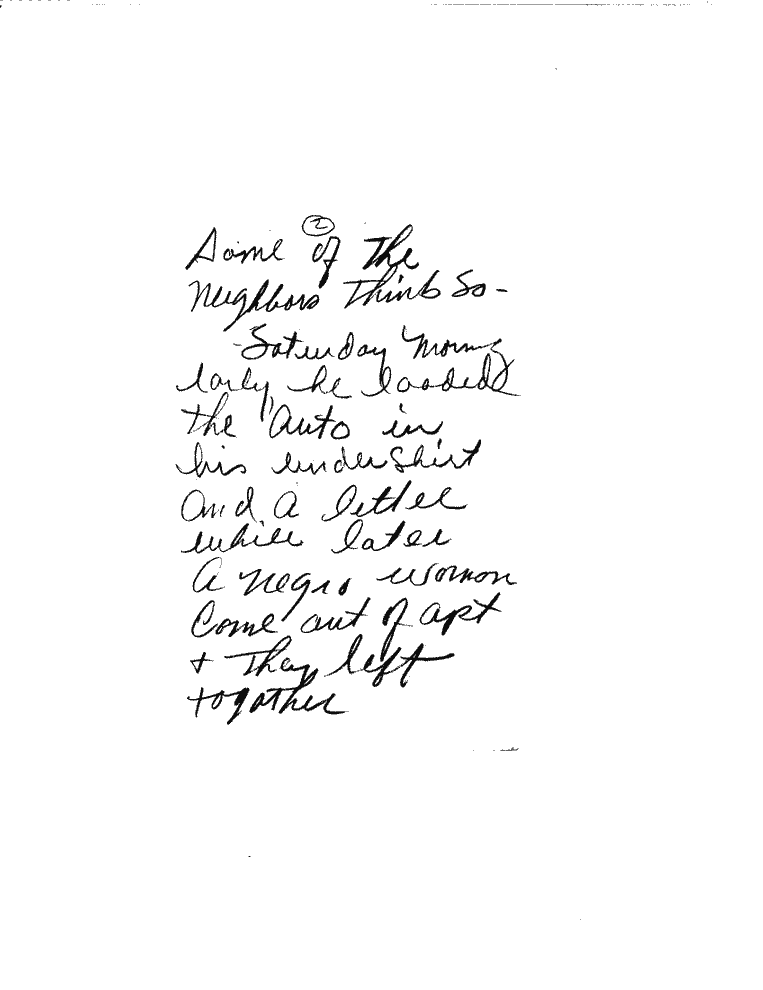 2
Some of the
Neighbors Think So -
- Saturday Morning
early he loaded
the Auto in
his undershirt
And A little
while later
A negro woman
Come out of apt
+ They left
together